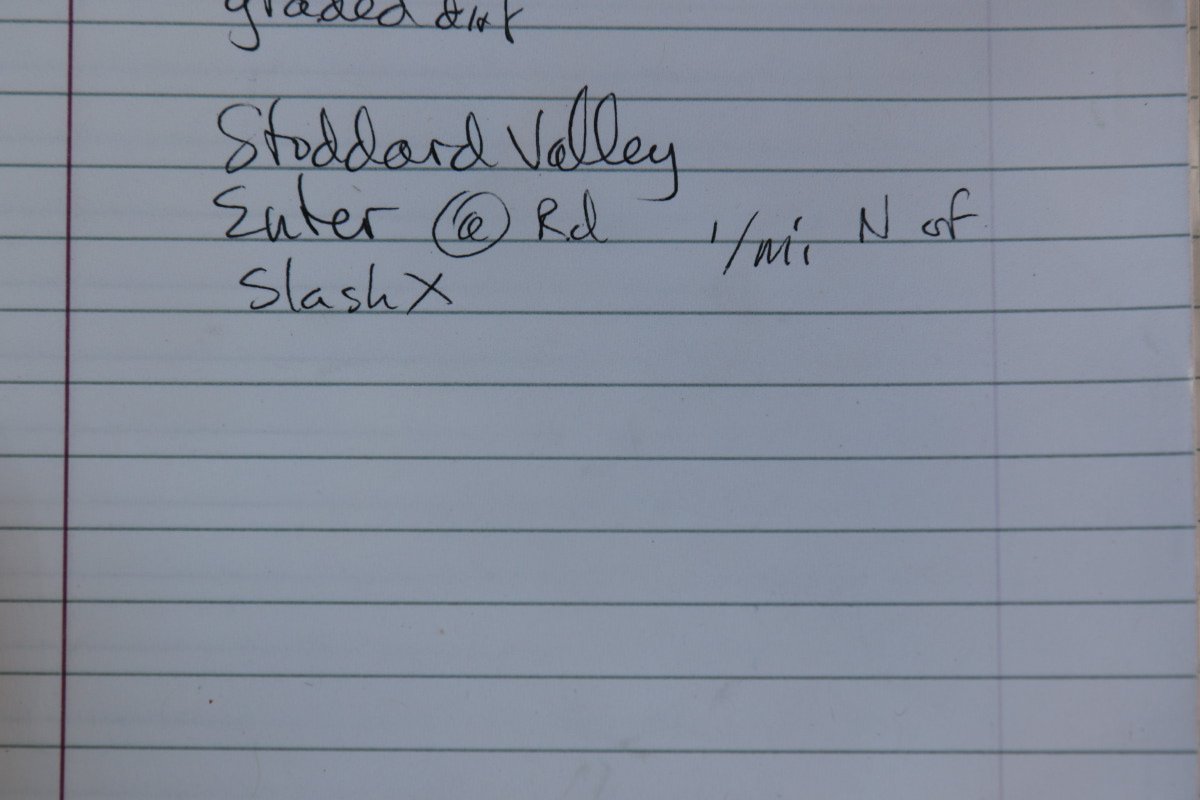 graded dirt
Stoddard Valley
Enter @ Rd 1/mi N of
Slash X